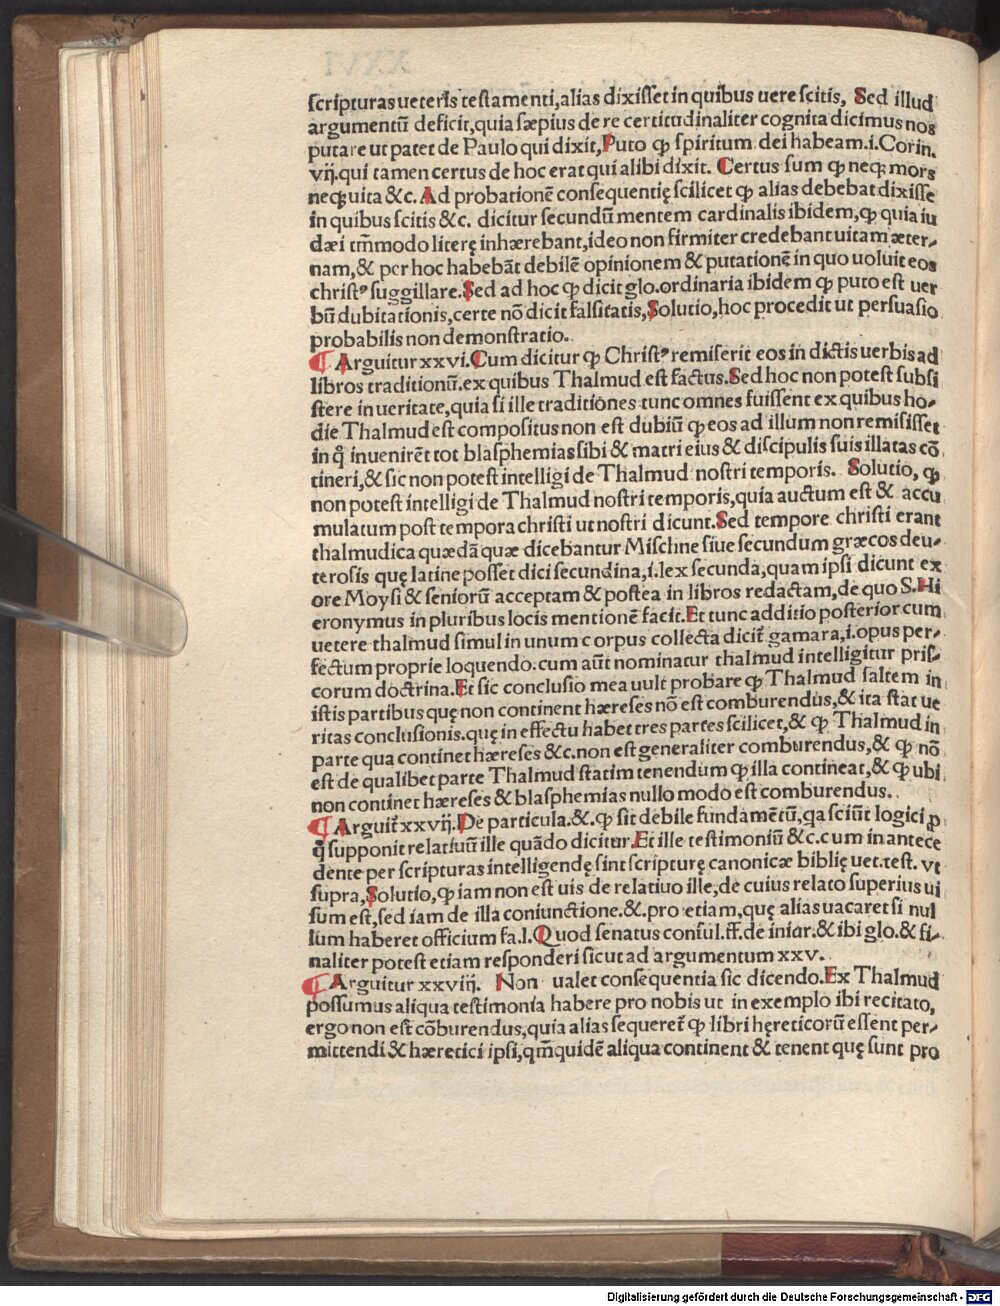 scripturas ueteris testamenti, alias dixisset in quibus uere scitis, Sed illud
argumentū deficit, quia sæpius de re certitudinaliter cognita dicimus nos
putare ut patet de Paulo qui dixit, Puto ꝙ spiritum dei habeam .i. Corin.
vij. qui tamen certus de hoc erat qui alibi dixit. Certus sum ꝙ neqꝫ mors
neqꝫ uita &c. Ad probationē consequentię scilicet ꝙ alias debebat dixisse
in quibus scitis &c. dicitur secundū mentem cardinalis ibidem, ꝙ quia iu
dæi tm̄modo literę inhærebant, ideo non firmiter credebant uitam æter-
nam, & per hoc habebāt debilē opinionem & putationē in quo uoluit eos
christꝰ suggillare. Sed ad hoc ꝙ dicit glo. ordinaria ibidem ꝙ puto est uer
bū dubitationis, certe nō dicit falsitatis, Solutio, hoc procedit ut persuasio
probabilis non demonstratio.
¶ Arguitur xxvi. Cum dicitur ꝙ Christꝰ remiserit eos in dictis uerbis ad
libros traditionū. ex quibus Thalmud est factus. Sed hoc non potest subsi
stere in ueritate, quia si ille traditiones tunc omnes fuissent ex quibus ho-
die Thalmud est compositus non est dubiū ꝙ eos ad illum non remisisset
in q̄ inuenirēt tot blasphemias sibi & matri eius & discipulis suis illatas cō
tineri, & sic non potest intelligi de Thalmud nostri temporis. Solutio, ꝙ
non potest intelligi de Thalmud nostri temporis, quia auctum est & accu
mulatum post tempora christi ut nostri dicunt. Sed tempore christi erant
thalmudica quædā quæ dicebantur Mischne siue secundum græcos deu-
terosis quę latine posset dici secundina, .i. lex secunda, quam ipsi dicunt ex
ore Moysi & seniorū acceptam & postea in libros redactam, de quo S. Hi
eronymus in pluribus locis mentionē facit. Et tunc additio posterior cum
uetere thalmud simul in unum corpus collecta dicit̄ gamara, .i. opus per-
fectum proprie loquendo. cum aūt nominatur thalmud intelligitur pris-
corum doctrina. Et sic conclusio mea uult probare ꝙ Thalmud saltem in
istis partibus quę non continent hæreses nō est comburendus, & ita stat ue
ritas conclusionis. quę in effectu habet tres partes scilicet, & ꝙ Thalmud in
parte qua continet hæreses &c. non est generaliter comburendus, & ꝙ nō
est de qualibet parte Thalmud statim tenendum ꝙ illa contineat, & ꝙ ubi
non continet hæreses & blasphemias nullo modo est comburendus.
¶ Arguit̄ xxvij. De particula. &. ꝙ sit debile fundamētū, qa sciūt logici ꝓ
q̄ supponit relatiuū ille quādo dicitur. Et ille testimoniū &c. cum in antece
dente per scripturas intelligendę sint scripturę canonicæ biblię uet. test. vt
supra, Solutio, ꝙ iam non est uis de relatiuo ille, de cuius relato superius ui
sum est, sed iam de illa coniunctione. &. pro etiam, quę alias uacaret si nul
lum haberet officium fa. l. Quod senatus consul. ff. de iniur. & ibi glo. & fi-
naliter potest etiam responderi sicut ad argumentum xxv.
¶ Arguitur xxviij. Non ualet consequentia sic dicendo. Ex Thalmud
possumus aliqua testimonia habere pro nobis ut in exemplo ibi recitato,
ergo non est cōburendus, quia alias sequeret̄ ꝙ libri hęreticorū essent per-
mittendi & hæretici ipsi, qm̄ quidē aliqua continent & tenent quę sunt pro
Digitalisierung gefördert durch die Deutsche Forschungsgemeinschaft - DFG